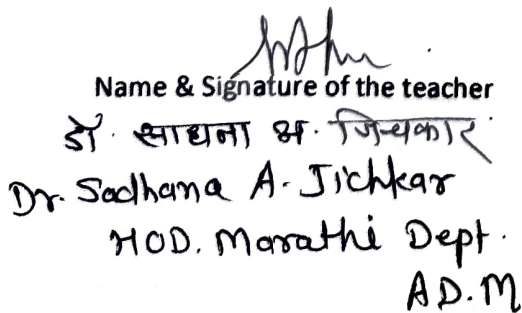 Name & Signature of the teacher
डॉ. साधना अ. जिचकार
Dr. Sadhana A. Jichkar
HOD. Marathi Dept.
AD.M